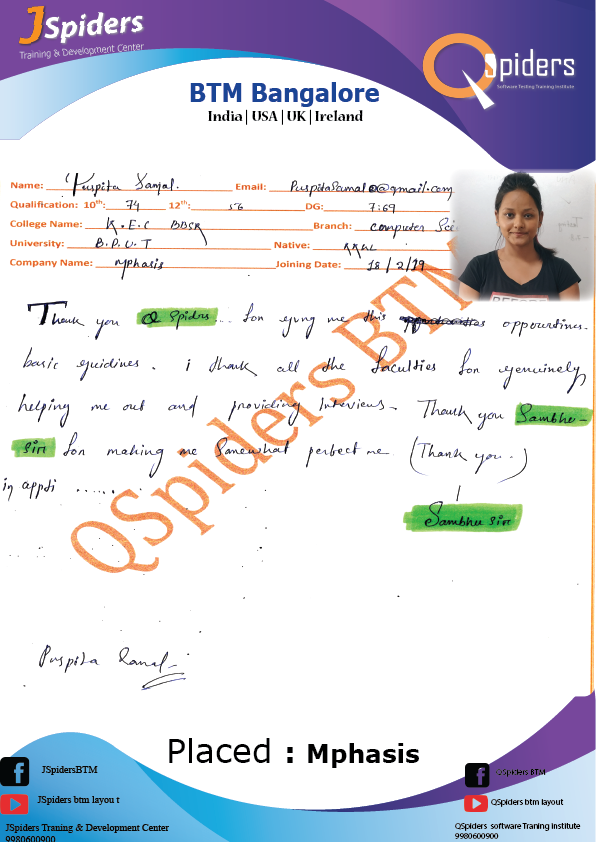 JSpiders
Training & Development Center
QSpiders
Software Testing Training Institute
BTM Bangalore
India | USA | UK | Ireland
Name: Puspita Email: @gmail.com
Qualification: 10th: 74 12th: 56 DG: 7.69
College Name: K.E.C BBSR Branch: computer Sci
University: B.P.U.T Native:
Company Name: mphasis Joining Date: 18/2/19
Thank you Q Spiders... for me this
basic . i thank all the faculties for genuinely
helping me out and providing Interviews. Thank you Sambhu
sir for making me somewhat perfect me (Thank you..)
in apti ......
Sambhu sir
QSpiders BTM
Puspita
Placed : Mphasis
JSpidersBTM
QSpiders BTM
JSpiders btm layou t
QSpiders btm layout
JSpiders Traning & Development Center
9980600900
QSpiders software Traning Institute
9980600900